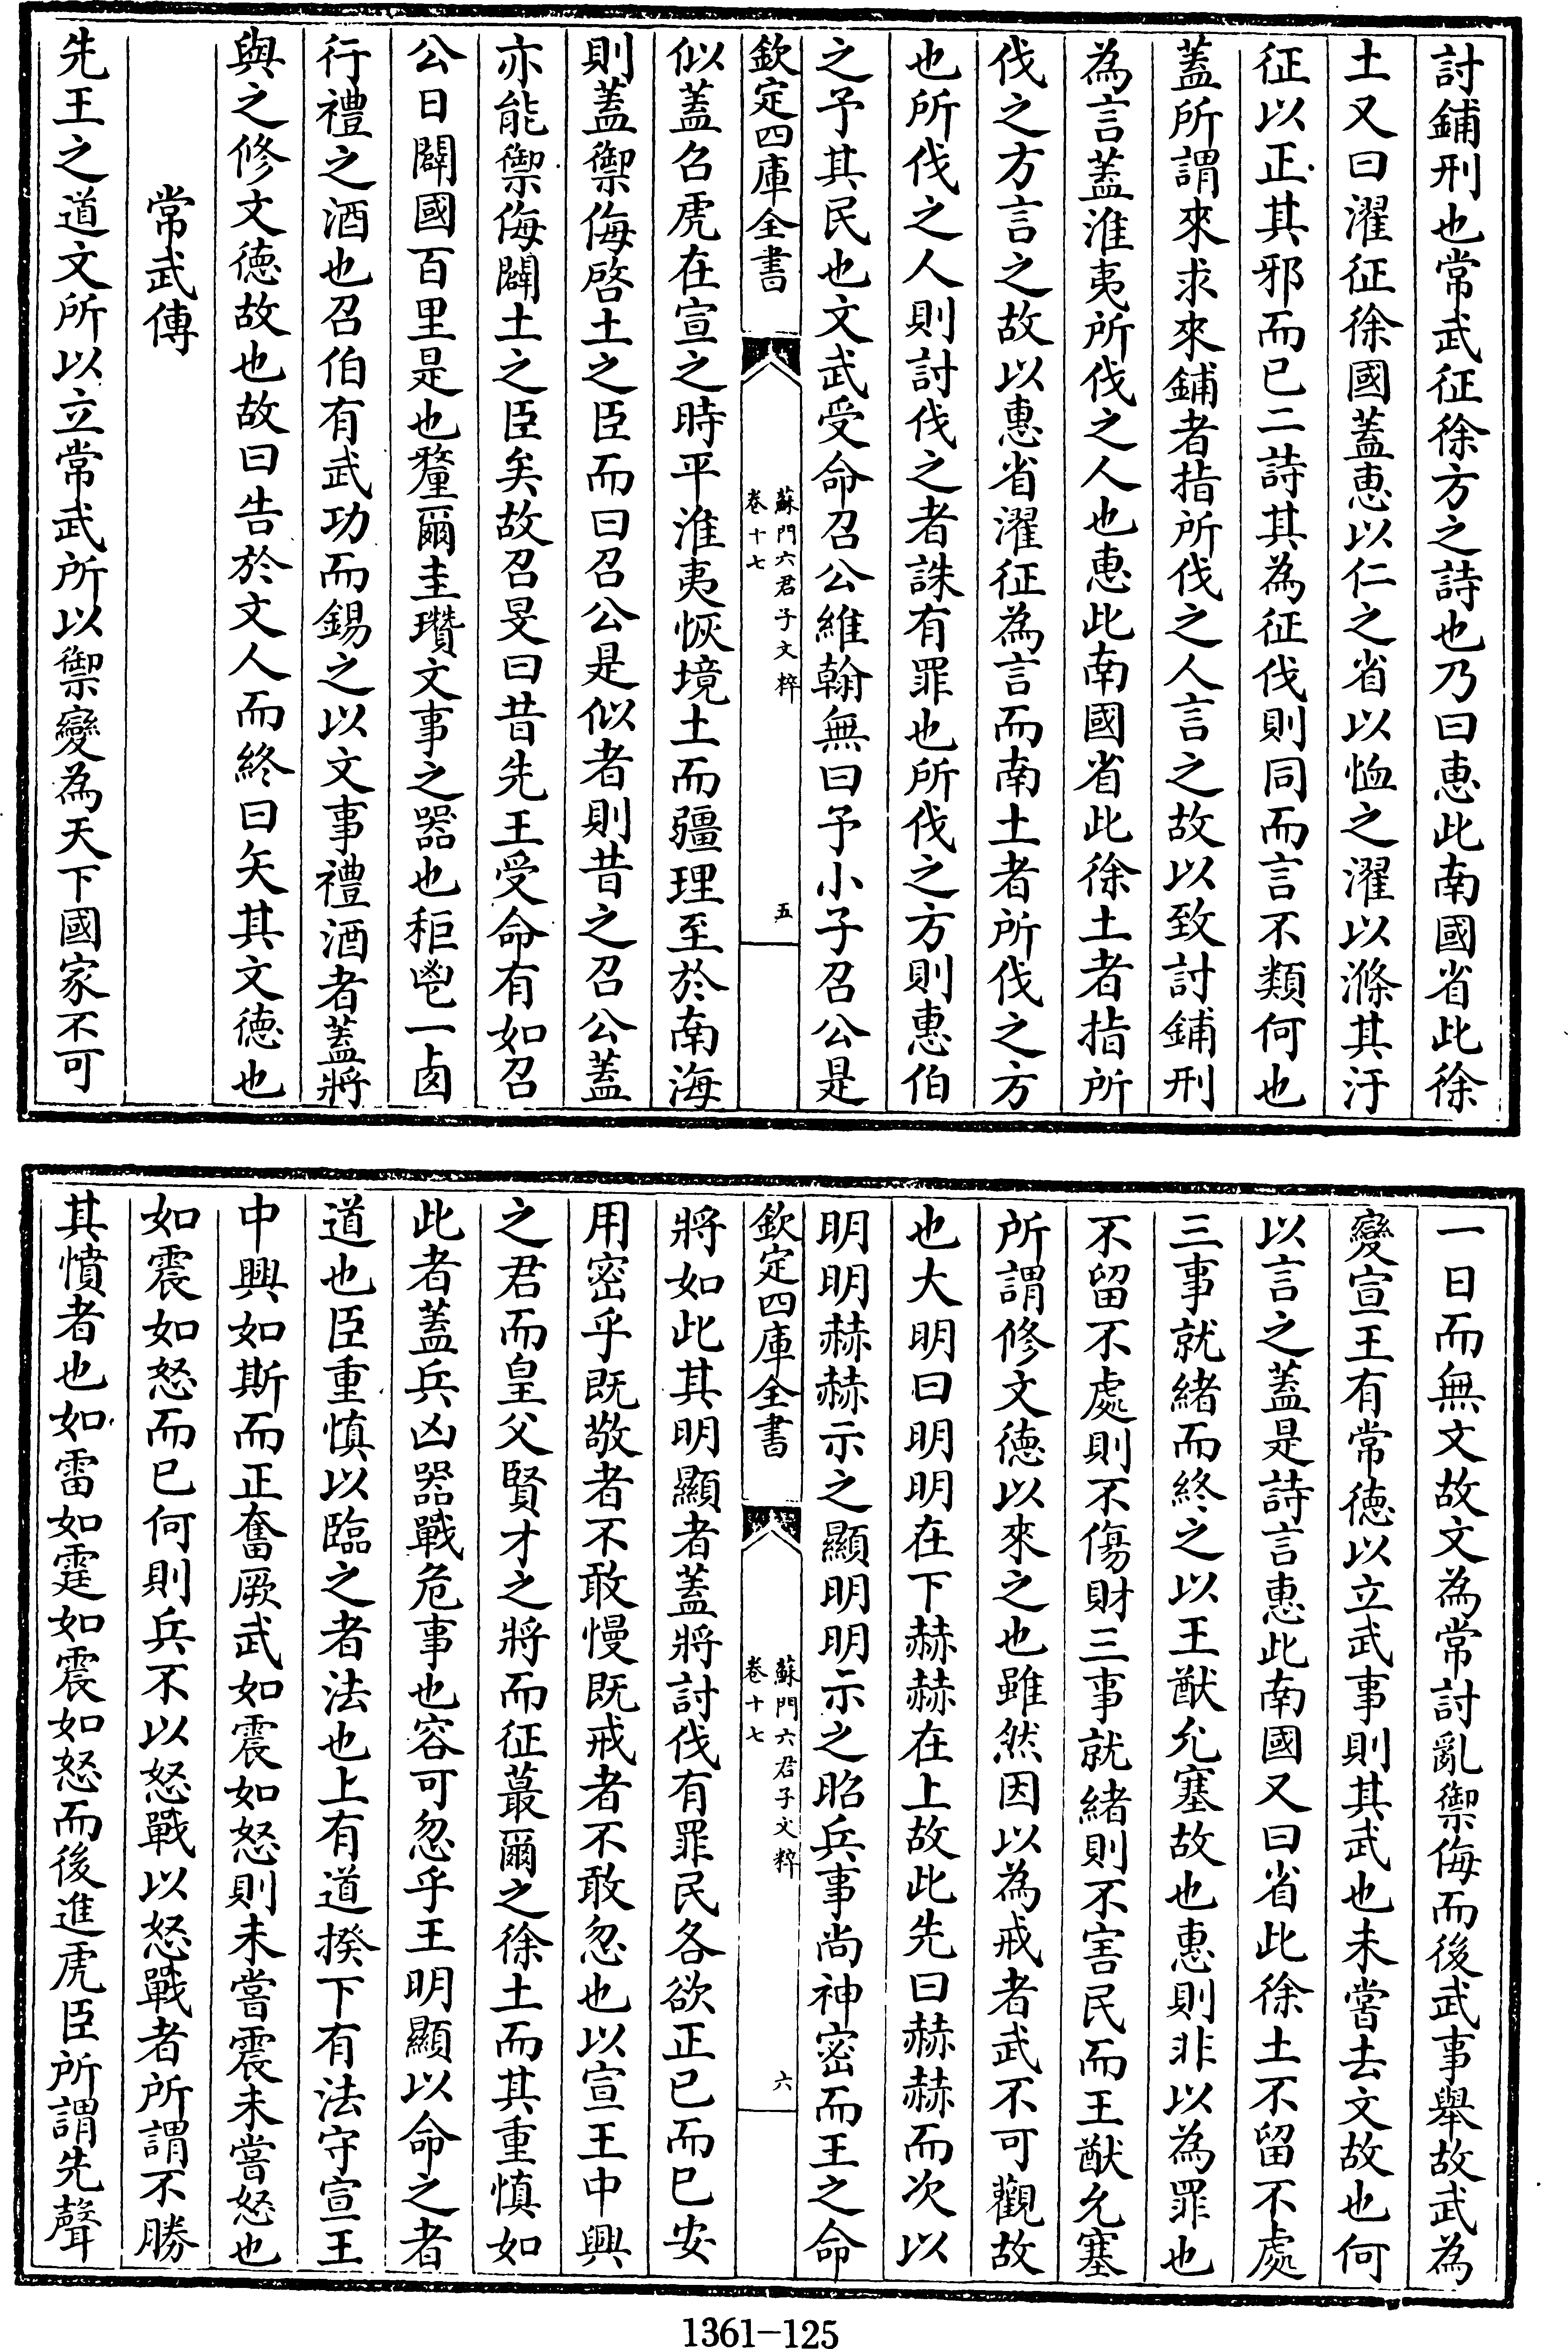 討鋪刑也常武征徐方之詩也乃曰惠此南國省此徐
土又曰濯征徐國蓋惠以仁之省以恤之濯以滌其汙
征以正其邪而已二詩其為征伐則同而言不類何也
蓋所謂來求來鋪者指所伐之人言之故以致討鋪刑
為言蓋淮夷所伐之人也惠此南國省此徐土者指所
伐之方言之故以惠省濯征為言而南土者所伐之方
也所伐之人則討伐之者誅有罪也所伐之方則惠伯
之予其民也文武受命召公維翰無曰予小子召公是
欽定四庫全書
蘇門六君子文粹
卷十七
五
似蓋召虎在宣之時平淮夷恢境土而疆理至於南海
則蓋禦侮啓土之臣而曰召公是似者則昔之召公蓋
亦能禦侮闢土之臣矣故召旻曰昔先王受命有如召
公日闢國百里是也釐爾圭瓚文事之器也秬鬯一卣
行禮之酒也召伯有武功而錫之以文事禮酒者蓋將
與之修文德故也故曰告於文人而終曰矢其文德也
常武傳
先王之道文所以立常武所以禦變為天下國家不可
一日而無文故文為常討亂禦侮而後武事舉故武為
變宣王有常德以立武事則其武也未嘗去文故也何
以言之蓋是詩言惠此南國又曰省此徐土不留不處
三事就緒而終之以王猷允塞故也惠則非以為罪也
不留不處則不傷財三事就緒則不害民而王猷允塞
所謂修文德以來之也雖然因以為戒者武不可觀故
也大明曰明明在下赫赫在上故此先曰赫赫而次以
明明赫赫示之顯明明示之昭兵事尚神密而王之命
欽定四庫全書
蘇門六君子文粹
卷十七
六
將如此其明顯者蓋將討伐有罪民各欲正已而已安
用密乎既敬者不敢慢既戒者不敢忽也以宣王中興
之君而皇父賢才之將而征蕞爾之徐土而其重慎如
此者蓋兵凶器戰危事也容可忽乎王明顯以命之者
道也臣重慎以臨之者法也上有道揆下有法守宣王
中興如斯而正奮厥武如震如怒則未嘗震未嘗怒也
如震如怒而已何則兵不以怒戰以怒戰者所謂不勝
其憤者也如雷如霆如震如怒而後進虎臣所謂先聲
1361-125